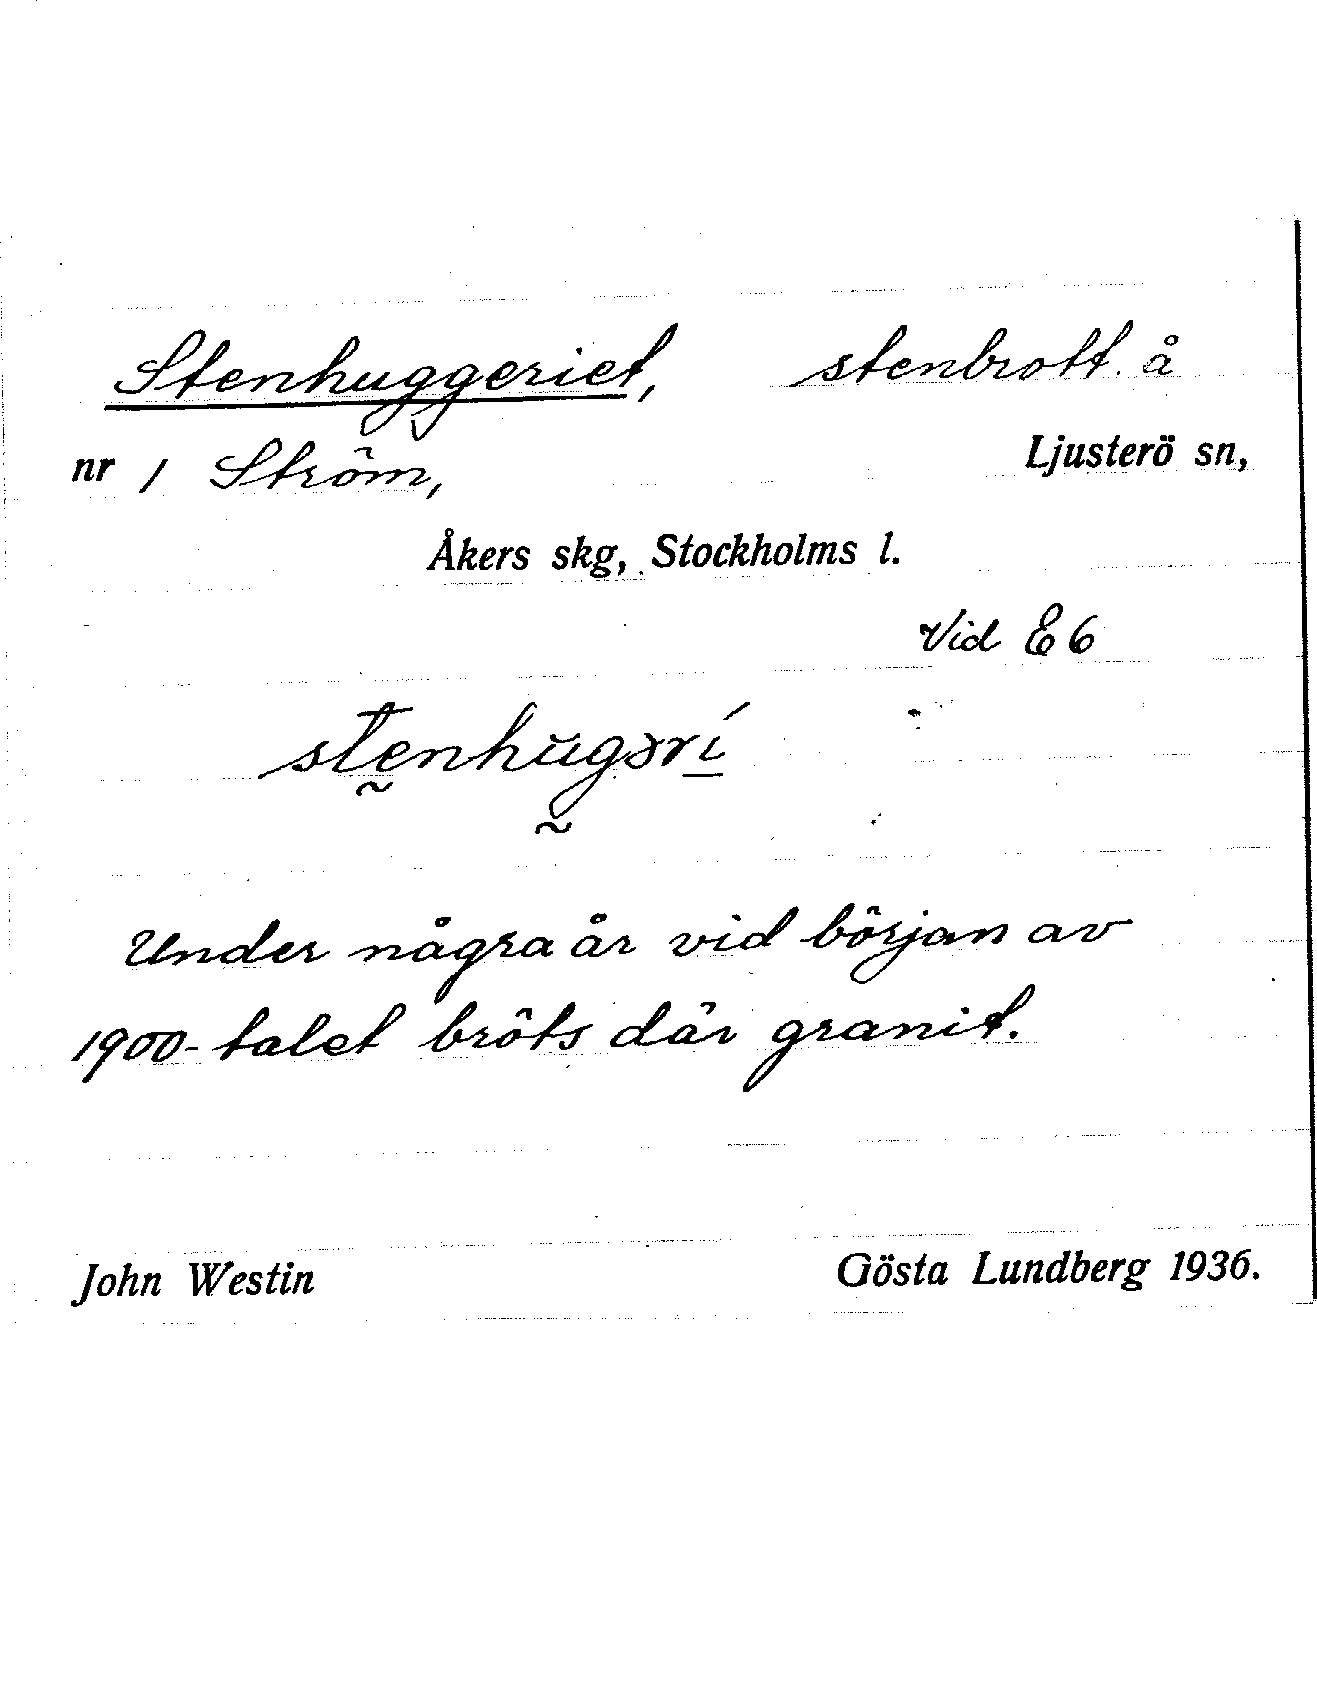 Stenhuggeriet, stenbrott å
nr 1 Ström, Ljusterö sn,
Åkers skg, Stockholms l.
Vid E6
stḛnhṵ̄gərí̱
Under några år vid början av
1900-talet bröts där granit.
John Westin Gösta Lundberg 1936.